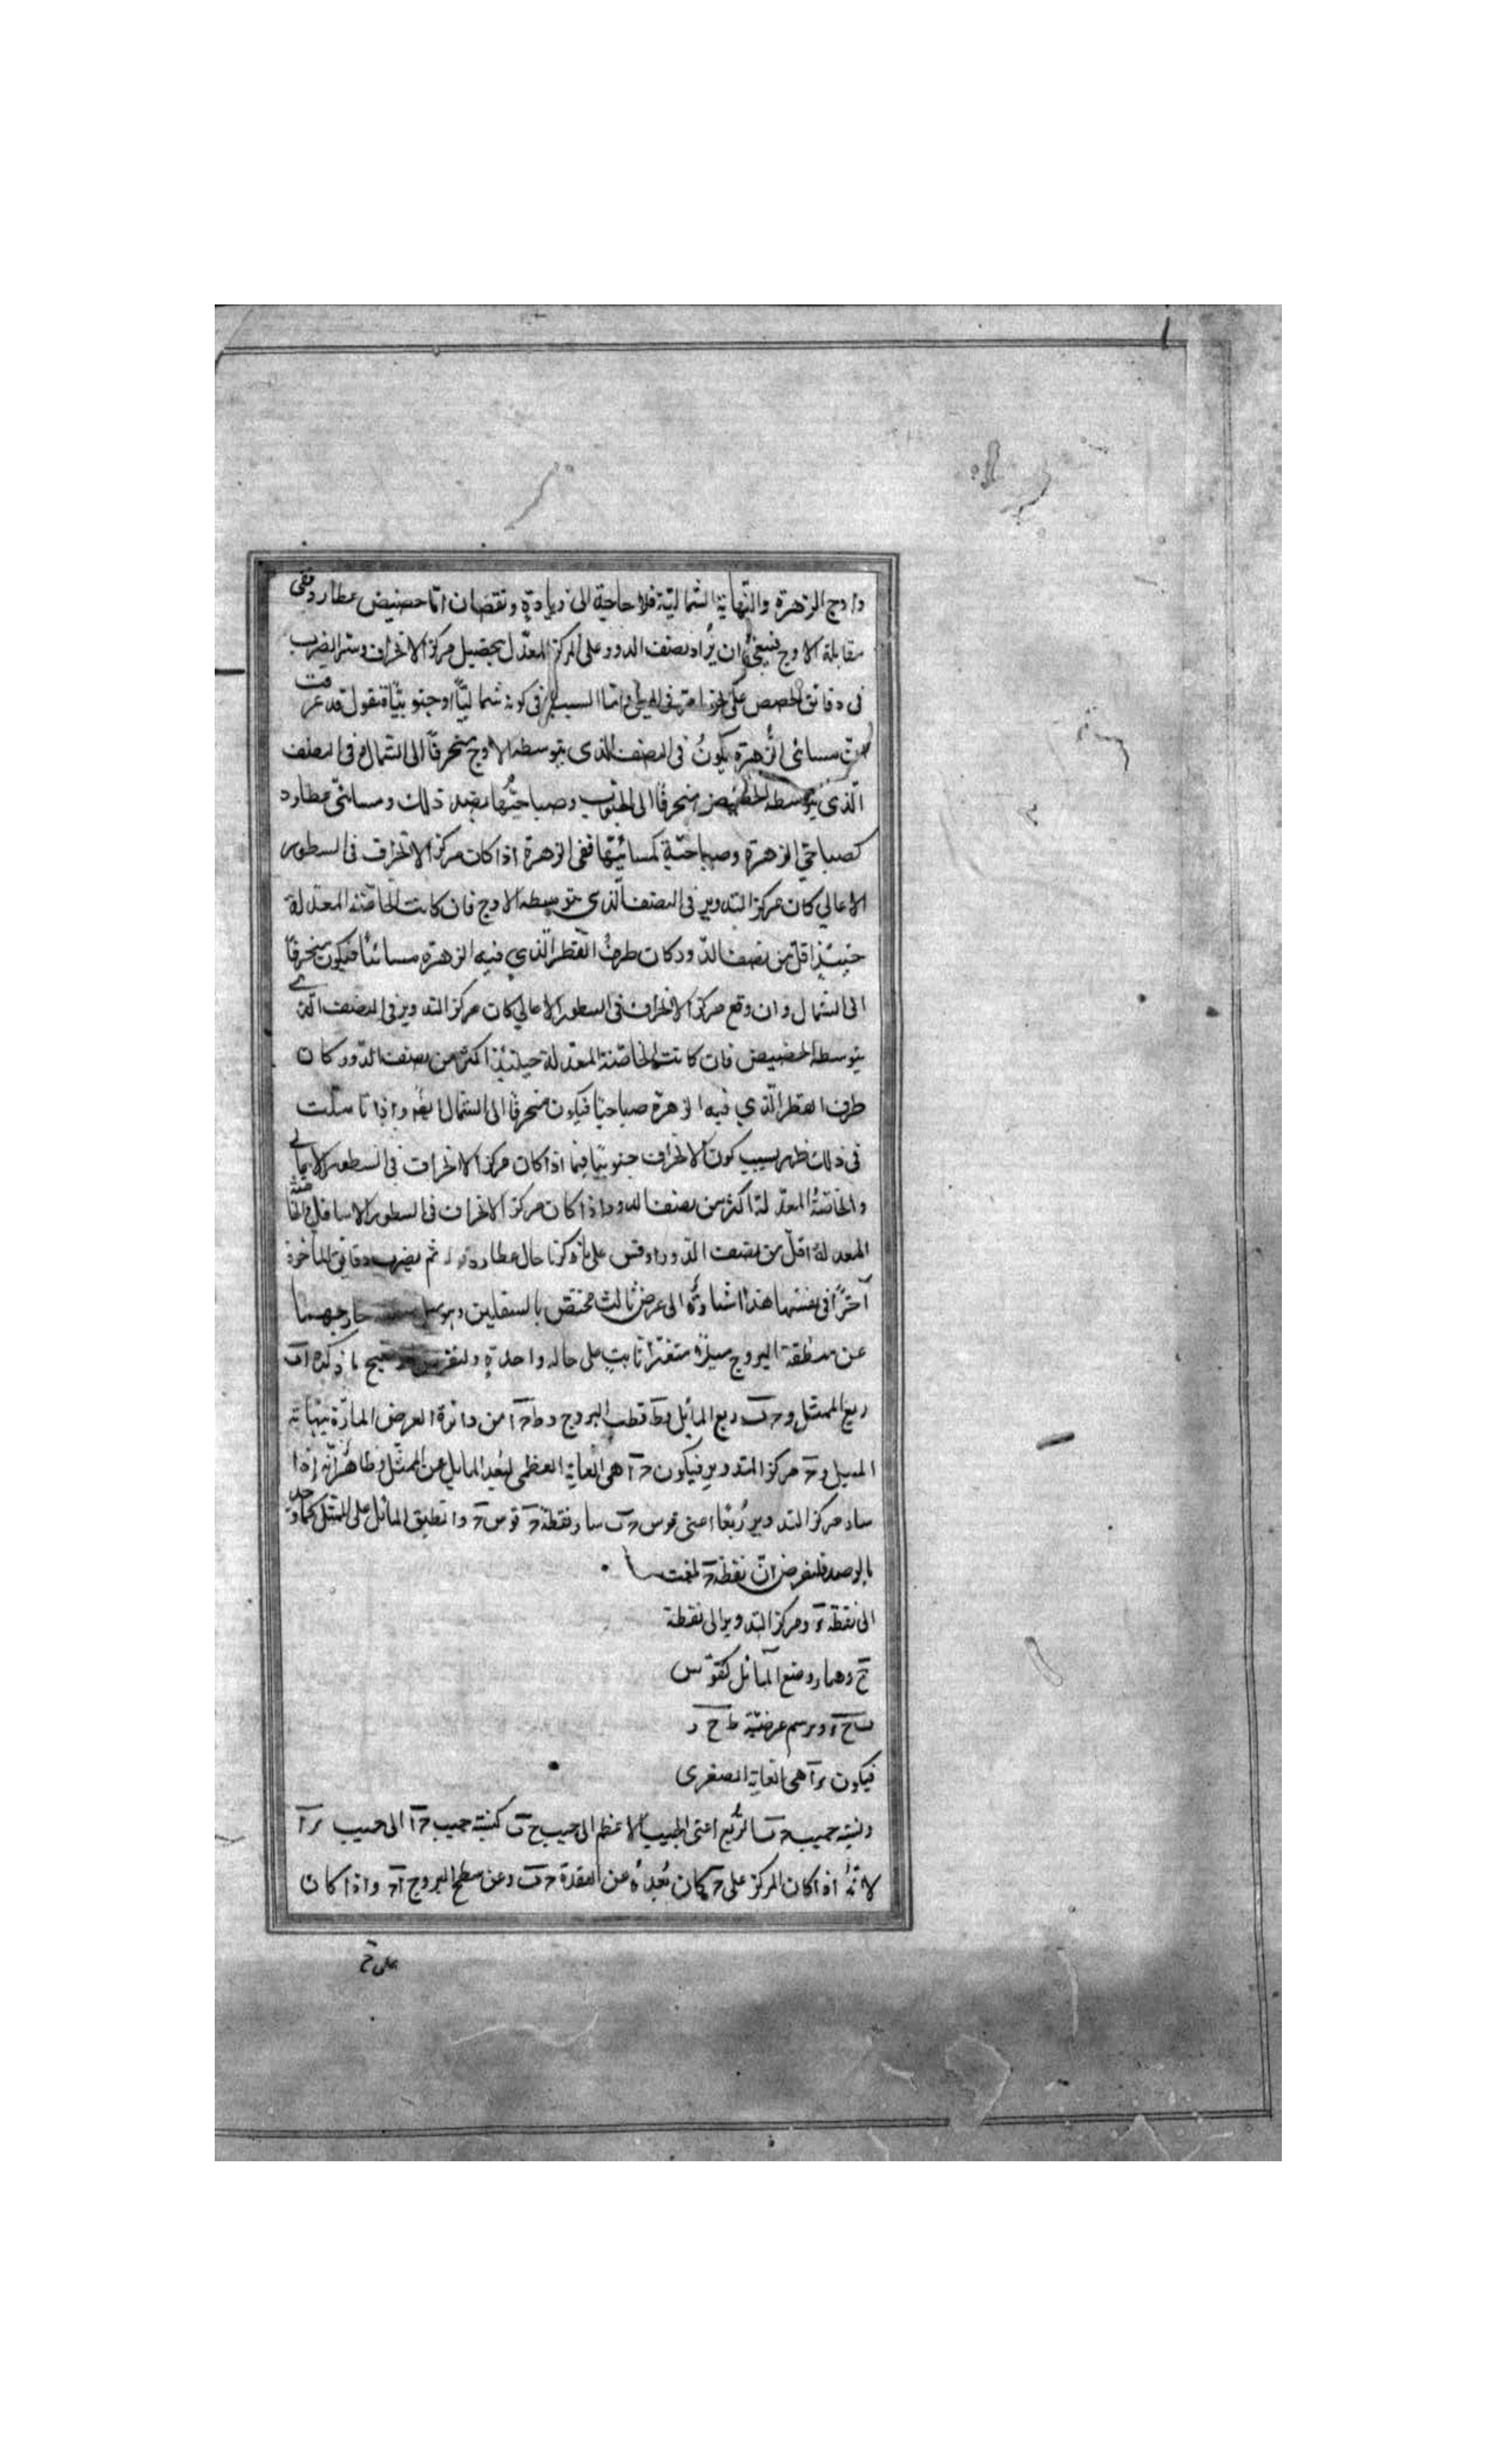 واوج الزهرة والنهاية الشمالية فلا حاجة الى زيادة ونقصان اما حضيض عطارد ففى
مقابلة الاوج فينبغى ان يزاد نصف الدور على المركز المعدل لتحصيل مركز الانحراف وسر الضرب
فى دقائق الحصص على نحو ما مر فى الميل واما السبب فى كونه شماليا او جنوبيا فنقول قد عرفت
ان مسائى الزهرة يكون فى النصف الذى يتوسطه الاوج منحرفا الى الشمال وفى النصف
الذى يتوسطه الحضيض منحرفا الى الجنوب وصباحيتها بضد ذلك ومسائى عطارد
كصباحى الزهرة وصباحية كمسائيتها ففى الزهرة اذا كان مركز الانحراف فى السطور
الاعالي كان مركز التدوير فى النصف الذى يتوسطه الاوج فان كانت الخاصة المعدلة
حينئذ اقل من نصف الدور كان طرف القطر الذي فيه الزهرة مسائيا فيكون منحرفا
الى الشمال وان وقع مركز الانحراف فى السطور الاعالي كان مركز التدوير فى النصف الذي
يتوسطه الحضيض فان كانت الخاصة المعدلة حينئذ اكثر من نصف الدور كان
طرف القطر الذي فيه الزهرة صباحيا فيكون منحرفا الى الشمال ايضا واذا تاملت
فى ذلك ظهر سبب كون الانحراف جنوبيا فيما اذا كان مركز الانحراف فى السطور الاعالي
والخاصة المعدلة اكثر من نصف الدور واذا كان مركز الانحراف فى السطور الاسافل والخاصة
المعدلة اقل من نصف الدور وقس على ما ذكرنا حال عطارد ثم يضرب دقائق المأخوذة
آخرا فى نفسها هذا اشارة الى عرض ثالث مختص بالسفليين وهو ميل خارجهما
عن منطقة البروج ميلا متغيرا ثابت على حالة واحدة ولنفرض ما ذكره اب
ربع الممثل وحب ربع المائل وط قطب البروج وطحا من دائرة العرض المارة بنهاية
الميل وح مركز التدوير فيكون حا هى الغاية العظمى لبعد المايل عن الممثل وظاهر انه اذا
سار مركز التدوير ربعا اعنى قوس حب سار نقطة ح قوس ح وانطبق المائل على الممثل كما وجد
بالرصد فلنفرض ان نقطة ح بلغت
الى نقطة ومركز التدوير الى نقطة
ح وصار وضع المائل كقوس
ب ح ونرسم عرضية ط ح ر
فيكون را هى الغاية الصغرى
ونسبة جيب حب الربع اعنى الجيب الاعظم الى جيب ح ب كنسبة جيب حا الى جيب را
لانه اذا كان المركز على ح كان بعده عن العقدة حب وعن سطح البروج اح واذا كان
على ح